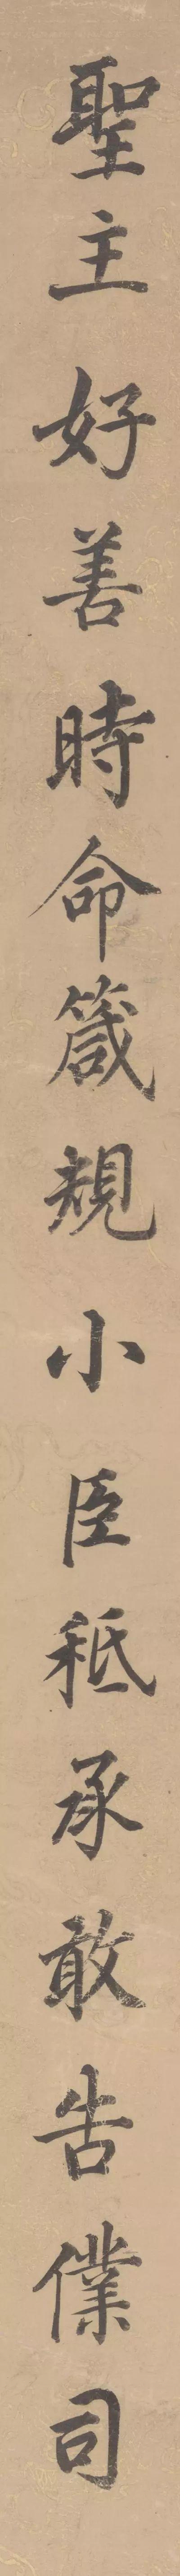 聖主好善時命箴規小臣秪承敢告僕司